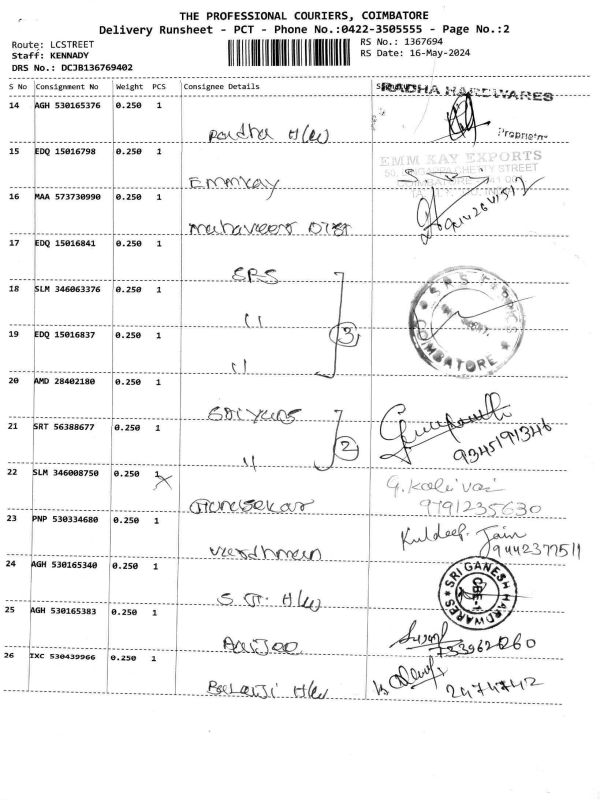 THE PROFESSIONAL COURIERS, COIMBATORE
Delivery Runsheet - PCT - Phone No.:0422-3505555 - Page No.:2
Route: LCSTREET
RS No.: 1367694
Staff: KENNADY
RS Date: 16-May-2024
DRS No.: DCJB136769402
S No Consignment No Weight PCS Consignee Details
RADHA HARDWARES
14 AGH 530165376 0.250 1
Radha H/W
Proprietor
15 EDQ 15016798 0.250 1
EMM KAY EXPORTS
Emmkay
16 MAA 573730990 0.250 1
Mahaveer
17 EDQ 15016841 0.250 1
SRS
18 SLM 346063376 0.250 1
"
S.R.S
COIMBATORE
19 EDQ 15016837 0.250 1
3
"
20 AMD 28402180 0.250 1
21 SRT 56388677 0.250 1
9345191346
2
"
22 SLM 346008750 0.250 1
G. Kalaivani
9791235630
23 PNP 530334680 0.250 1
Kuldeep. Jain
9442377511
Vardhman
24 AGH 530165340 0.250 1
SRI GANESH HARDWARES
CBE-1
H/W
25 AGH 530165383 0.250 1
26 IXC 530439966 0.250 1
Balaji H/W
2474742